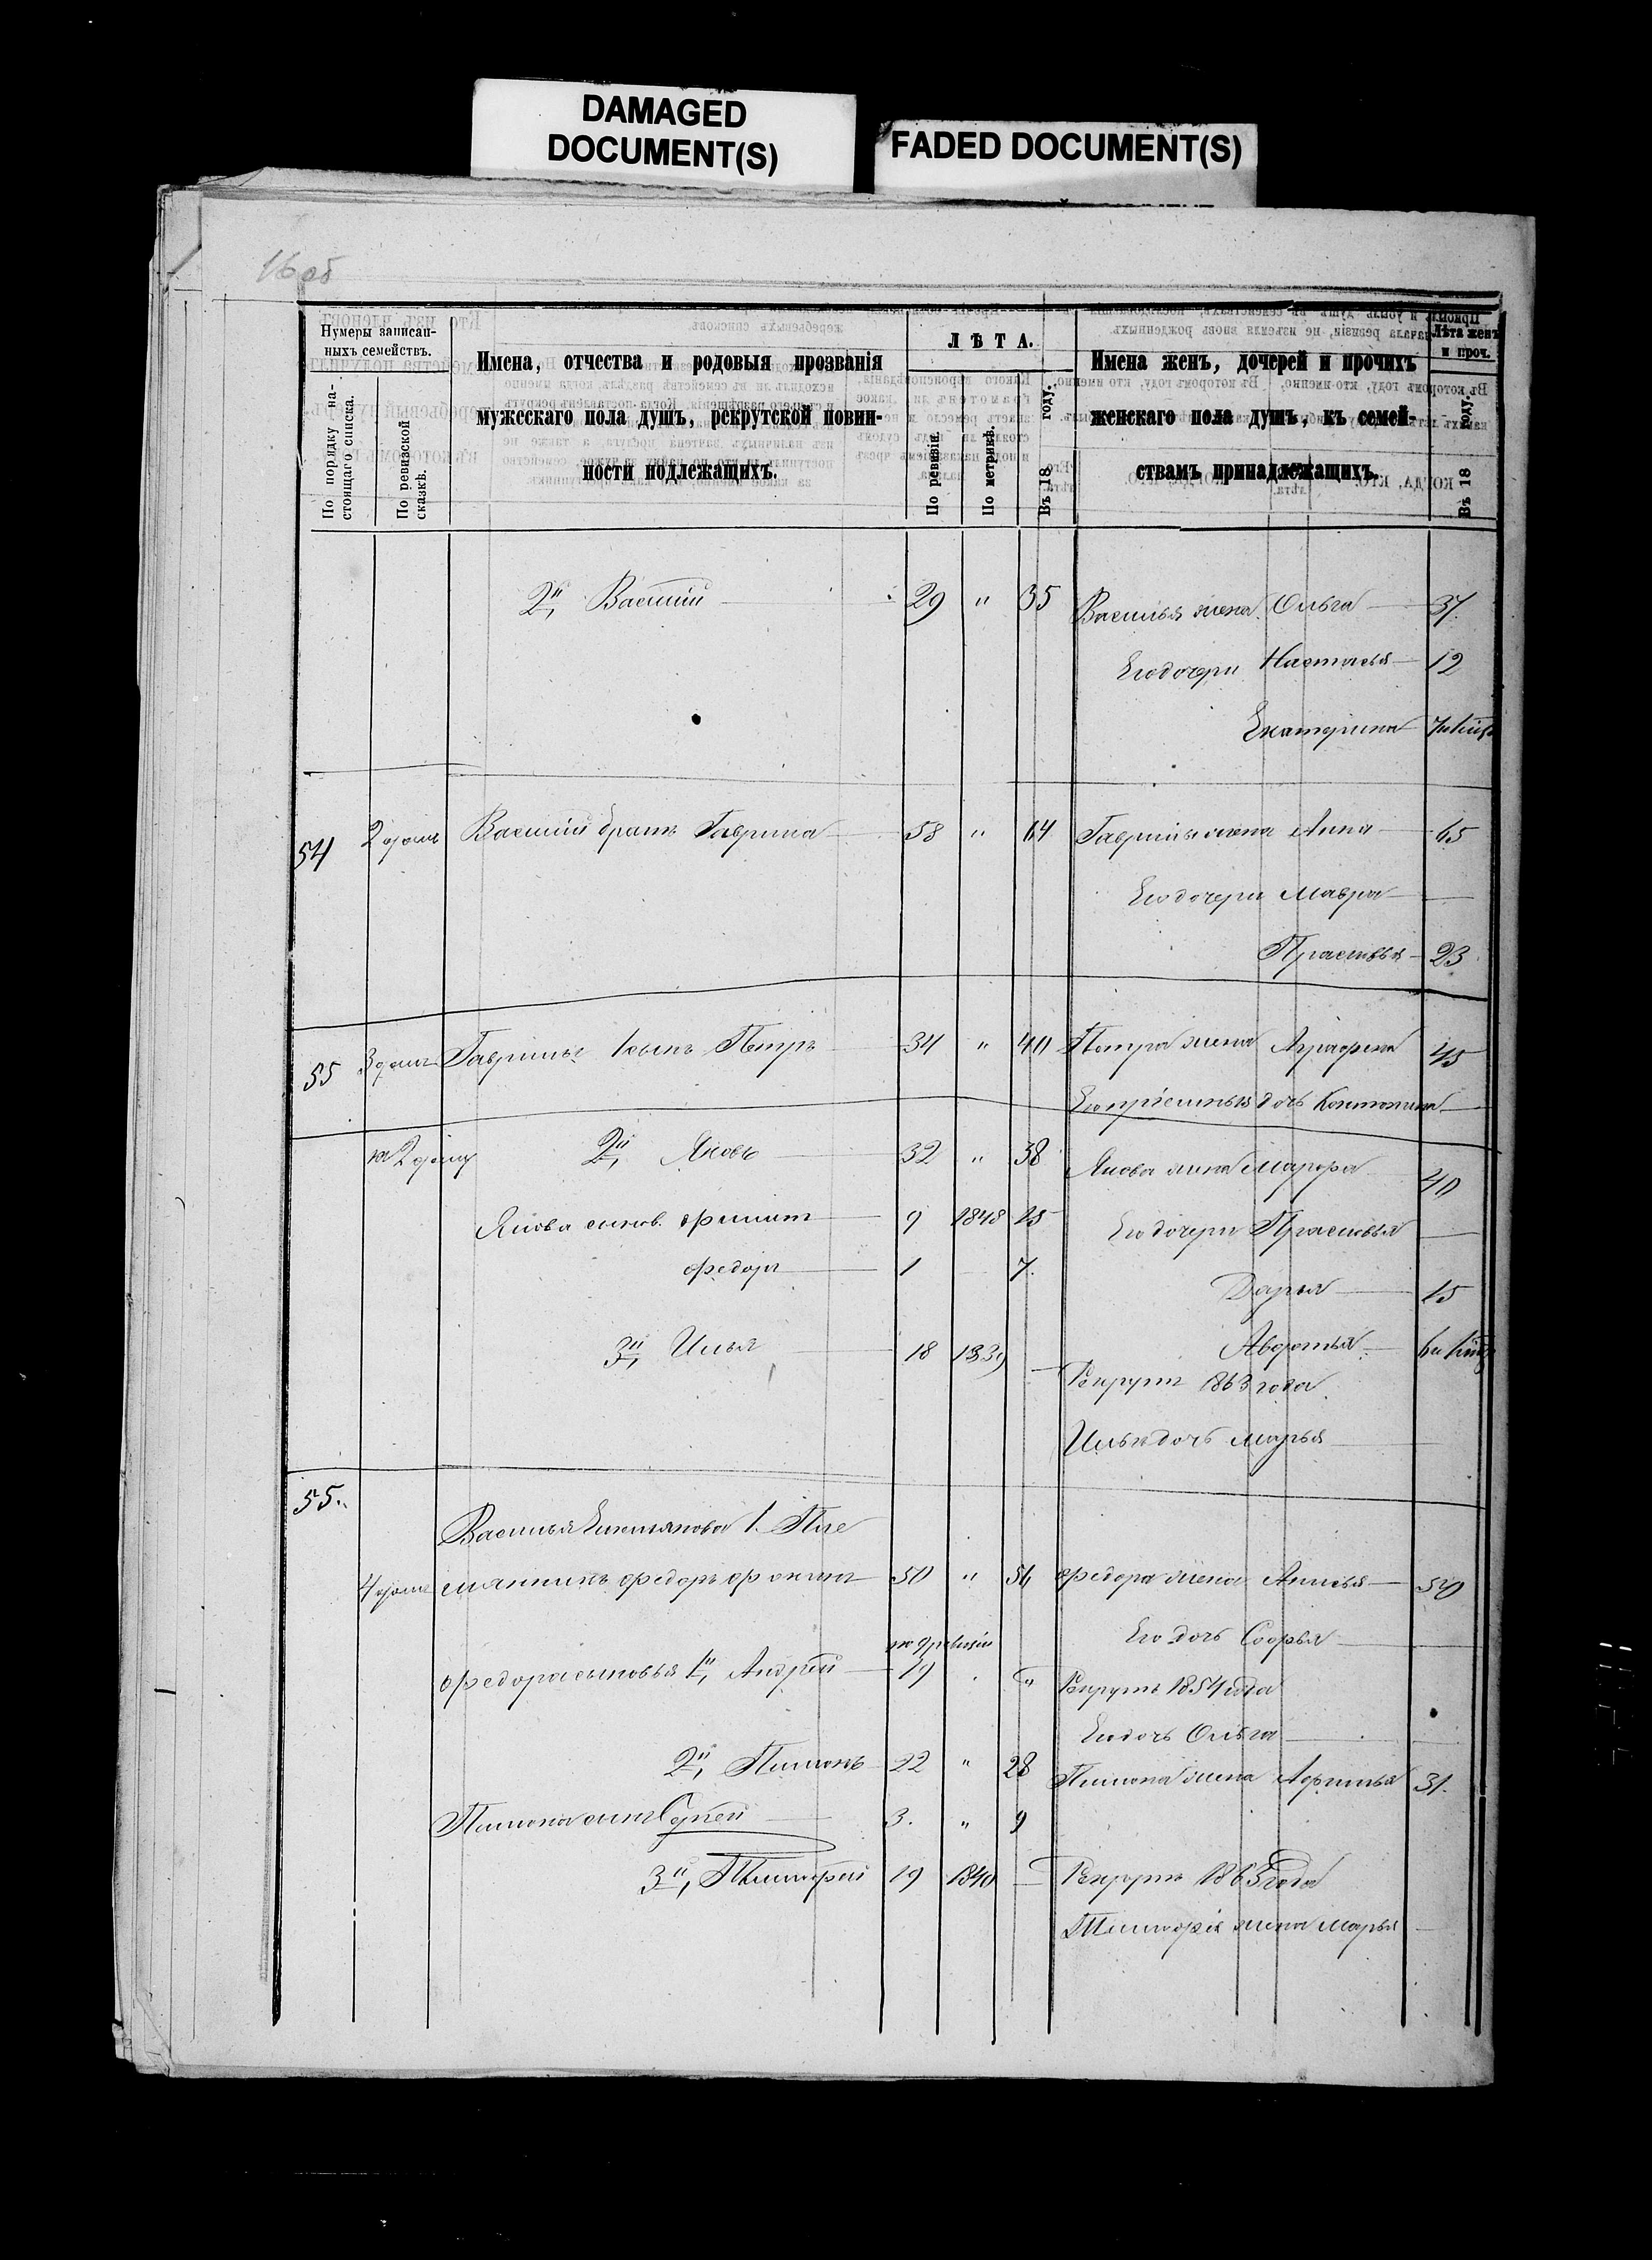 DAMAGED
DOCUMENT(S)
FADED DOCUMENT(S)
16 об
Нумеры записан-
ныхъ семействъ.
По порядку на-
стоящаго списка.
По ревизской
сказкѣ.
Имена, отчества и родовыя прозванія
мужескаго пола душъ, рекрутской повин-
ности подлежащихъ.
ЛѢТА.
По ревизіи.
По метрикѣ.
Въ 18 году.
Имена женъ, дочерей и прочихъ
женскаго пола душъ, къ семей-
ствамъ принадлежащихъ.
Лѣта женъ
и проч.
Въ 18 году.
2й, Василій 29 " 35 Василья жена Ольга 37
Его дочери Настасья 12
Екатерина 7
54 2 домъ Василій братъ Гаврила 58 " 64 Гаврилы жена Анна 65
Его дочери Мавра
Прасковья 23
55 3 домъ Гаврилы 1 сынъ Петръ 34 " 40 Петра жена Аграфена 45
Его пріемныя дочь
2й, Яковъ 32 " 38 Якова жена Марфа 40
Якова сынов. Филипп 9 1848 15 Его дочери Прасковья
Федоръ 1 7
Дарья 15
3й, Илья 18 1839 Авдотья 6
Рекрутъ 1863 года
Ильи дочь Марья
55.
Василья Емельянова 1. Пле
4 домъ мянникъ Федоръ Фокинъ 50 " 56 Федора жена Анисья 50
по 9 ревизіи Его дочь Софья
Федора сыновья 1й, Андрей 19 " Рекрутъ 1854 года
Его дочь Ольга
2й, Пимонъ 22 " 28 Пимона жена Афимья 31.
Пимона сынъ Сергей 3. " 9
3й, Тимофей 19 1840 Рекрутъ 1863 года
Тимофея жена Марья